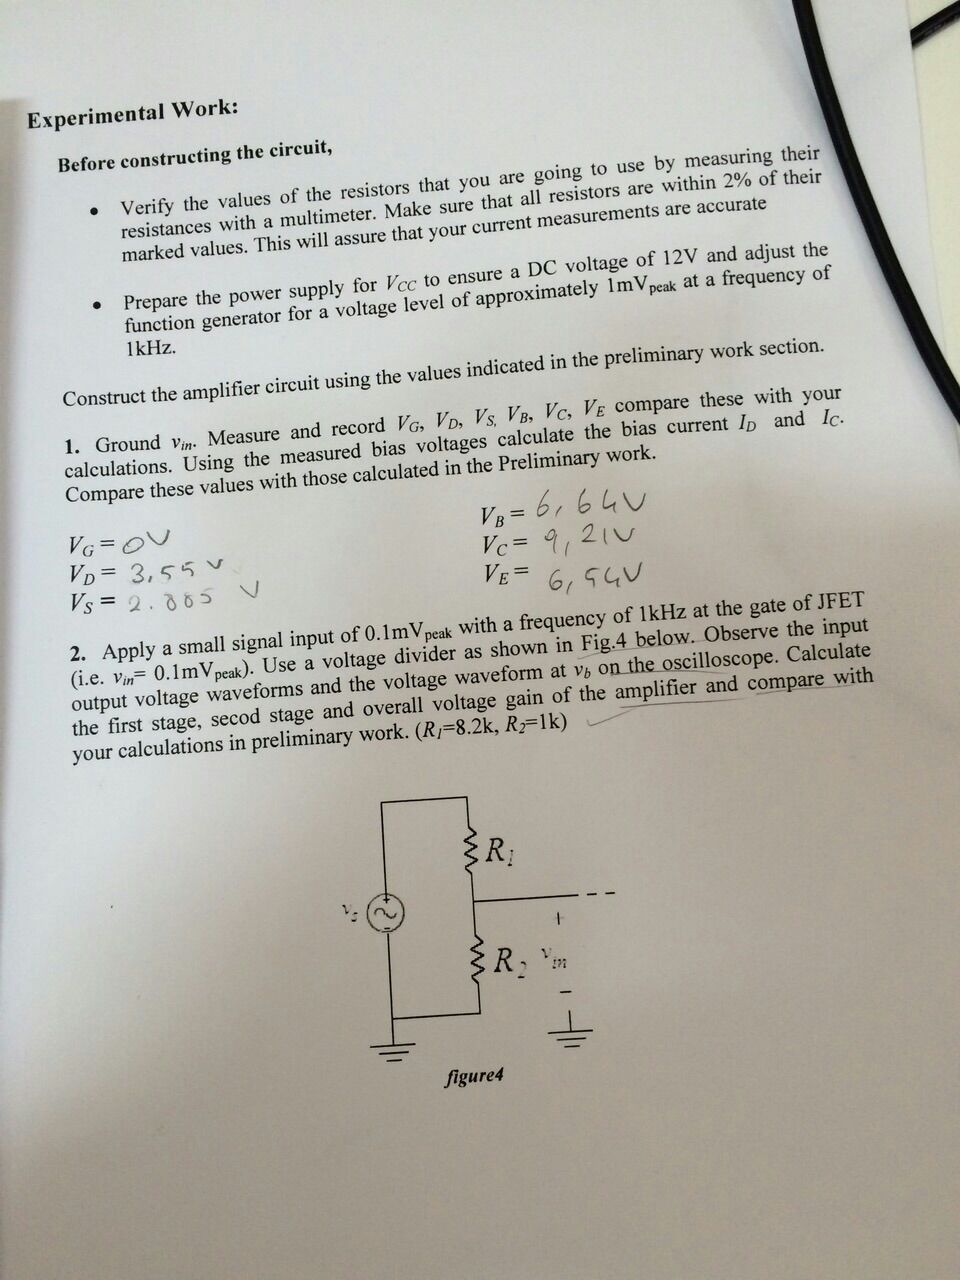 Experimental Work:
Before constructing the circuit,
• Verify the values of the resistors that you are going to use by measuring their
resistances with a multimeter. Make sure that all resistors are within 2% of their
marked values. This will assure that your current measurements are accurate
• Prepare the power supply for VCC to ensure a DC voltage of 12V and adjust the
function generator for a voltage level of approximately 1mVpeak at a frequency of
1kHz.
Construct the amplifier circuit using the values indicated in the preliminary work section.
1. Ground vin. Measure and record VG, VD, VS, VB, VC, VE compare these with your
calculations. Using the measured bias voltages calculate the bias current ID and IC.
Compare these values with those calculated in the Preliminary work.
VG = 0V
VD = 3,55 V
VS = 2. V
VB = 6,64V
VC = 9,21V
VE = V
2. Apply a small signal input of 0.1mVpeak with a frequency of 1kHz at the gate of JFET
(i.e. vin= 0.1mVpeak). Use a voltage divider as shown in Fig.4 below. Observe the input
output voltage waveforms and the voltage waveform at vb on the oscilloscope. Calculate
the first stage, secod stage and overall voltage gain of the amplifier and compare with
your calculations in preliminary work. (R1=8.2k, R2=1k)
R1
+
vs
+
R2 vin
-
figure4